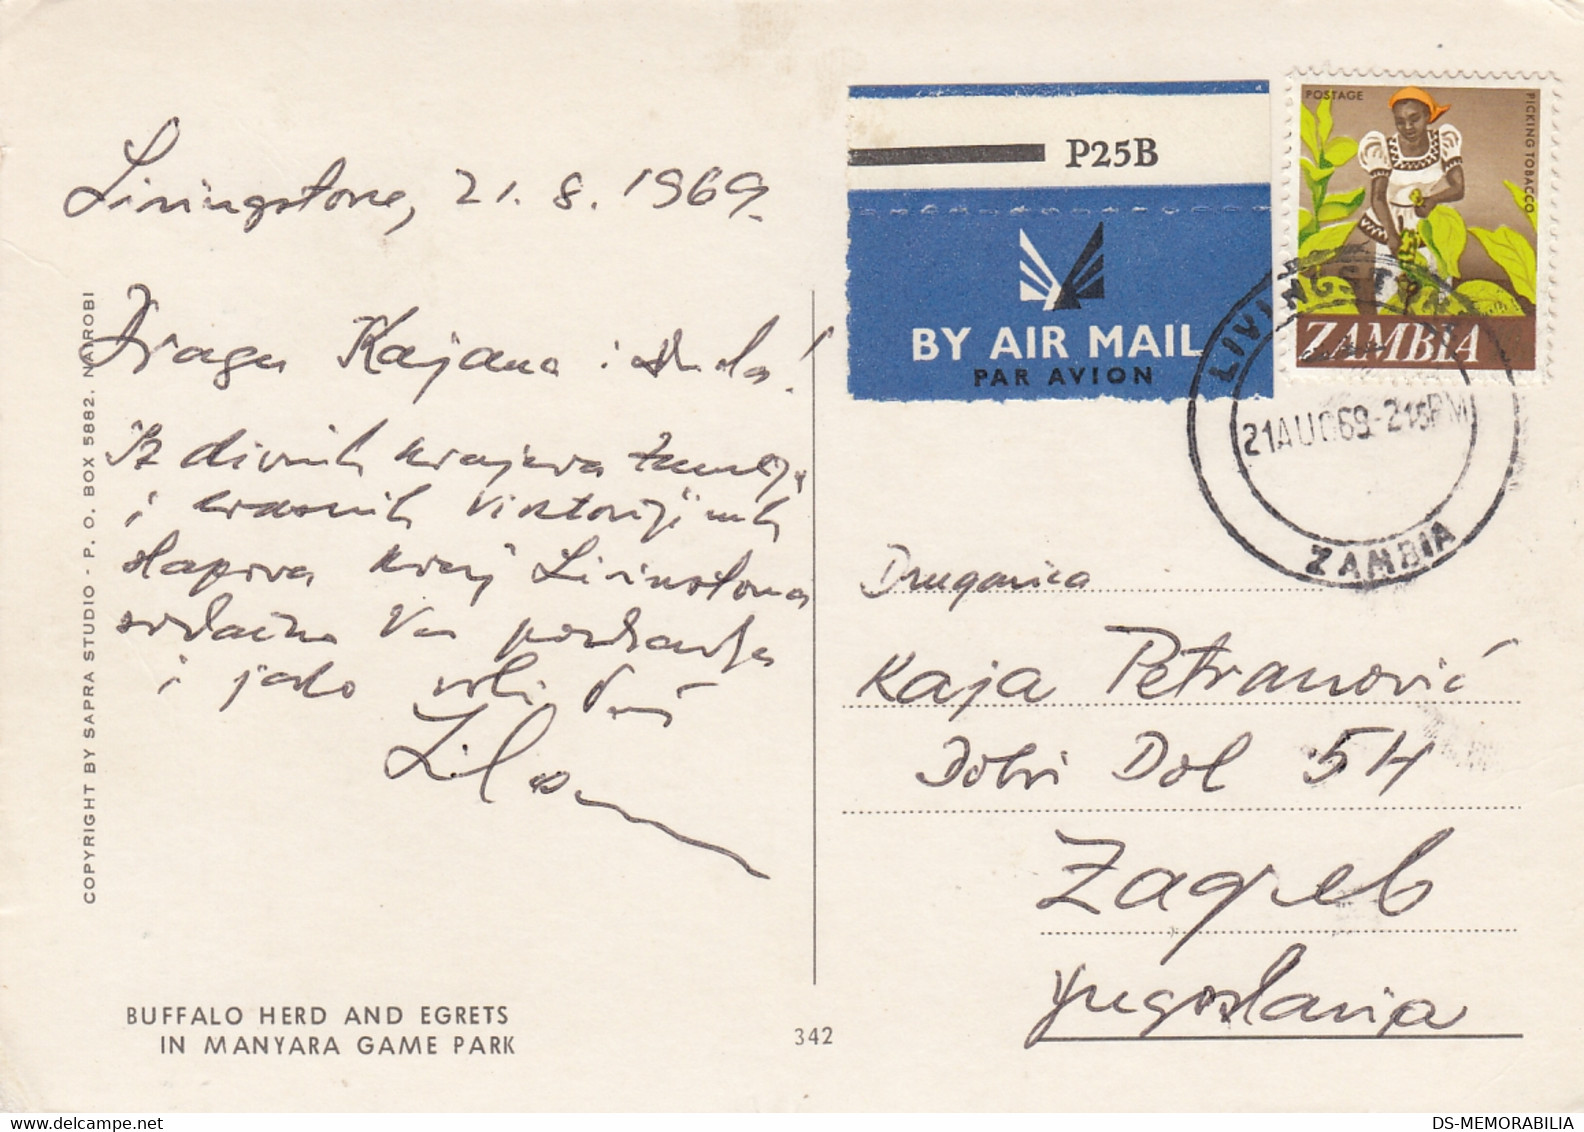 Livingstone, 21. 8. 1969.
Draga Kajana i
Iz divnih krajeva Zambije
i krasnih Viktorijinih
slapova kraj Livinstona
srdačno Vas pozdravlja
i jako voli Vaš
COPYRIGHT BY SAPRA STUDIO - P. O. BOX 5882. NAIROBI
BUFFALO HERD AND EGRETS
IN MANYARA GAME PARK
342
P25B
BY AIR MAIL
PAR AVION
POSTAGE
PICKING TOBACCO
ZAMBIA
LIVINGSTONE
21AUG69-215PM
ZAMBIA
Drugarica
Kaja Petranović
Dobri Dol 54
Zagreb
Jugoslavija
DS-MEMORABILIA